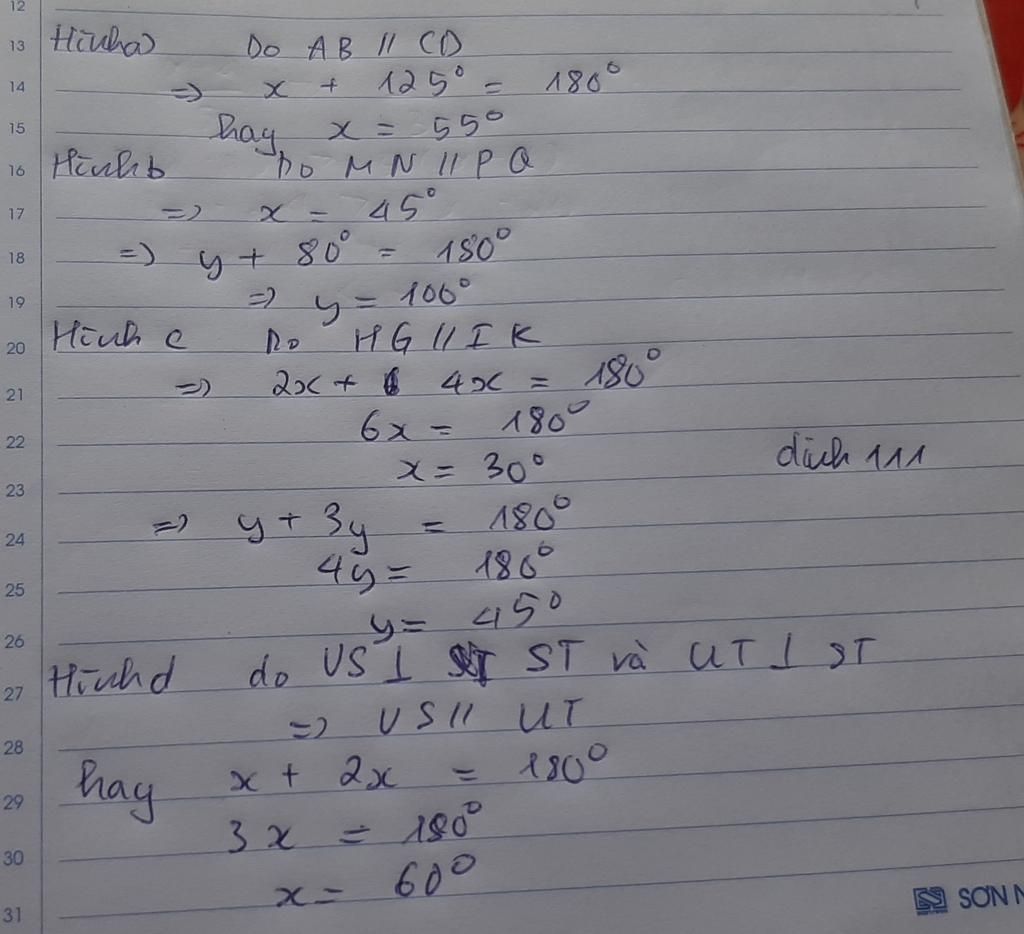 12
13 Hình a) Do AB // CD
14 => x + 125° = 180°
15 hay x = 55°
16 Hình b Do MN // PQ
17 => x = 45°
18 => y + 80° = 180°
19 => y = 100°
20 Hình c Do HG // IK
21 => 2x + 4x = 180°
22 6x = 180°
23 x = 30° đỉnh 111
24 => y + 3y = 180°
25 4y = 180°
26 y = 45°
27 Hình d do VS ⊥ ST và UT ⊥ ST
28 => VS // UT
29 hay x + 2x = 180°
30 3x = 180°
31 x = 60°
SƠN